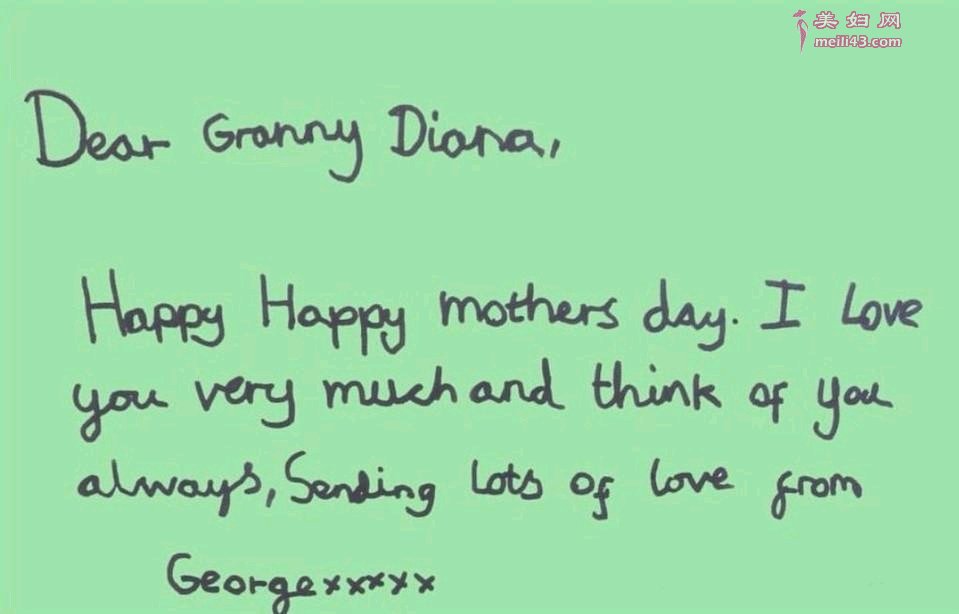 美妇网
meili43.com
Dear Granny Diana,
Happy Happy mothers day. I Love
you very much and think of you
always, Sending Lots of love from
Georgexxxxx